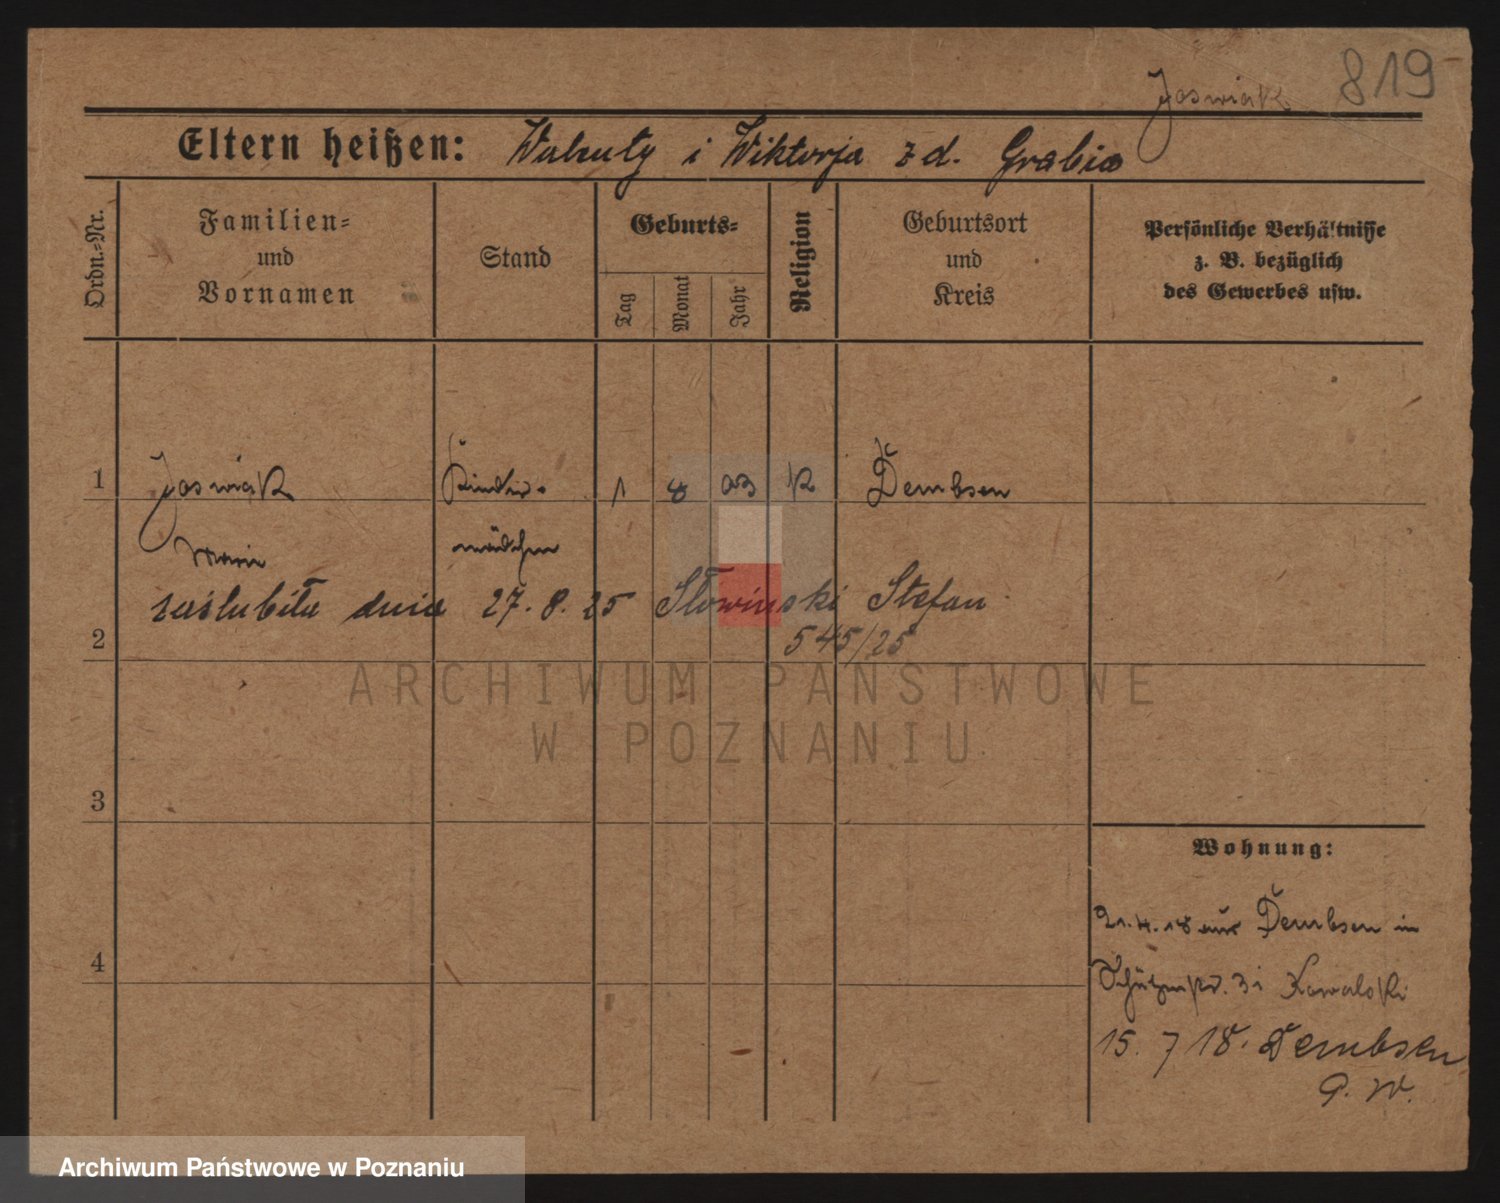 819
Joswiak
Eltern heißen: Walenty i Wiktorja z d. Grabia
Ordn.-Nr.
Familien-
und
Vornamen
Stand
Geburts-
Tag
Monat
Jahr
Religion
Geburtsort
und
Kreis
Persönliche Verhältnisse
z. B. bezüglich
des Gewerbes usw.
1 Joswiak Kinder- 1 8 03 K Dembsen
Marie mädchen
zaślubiła dnia 27.8.25 Słowinski Stefan
545/25
2
3
4
Wohnung:
21.4.18 aus Dembsen in
Schützenstr. 31 Kowalski
15. 7 18. Dembsen
P. W.
ARCHIWUM PAŃSTWOWE
W POZNANIU
Archiwum Państwowe w Poznaniu